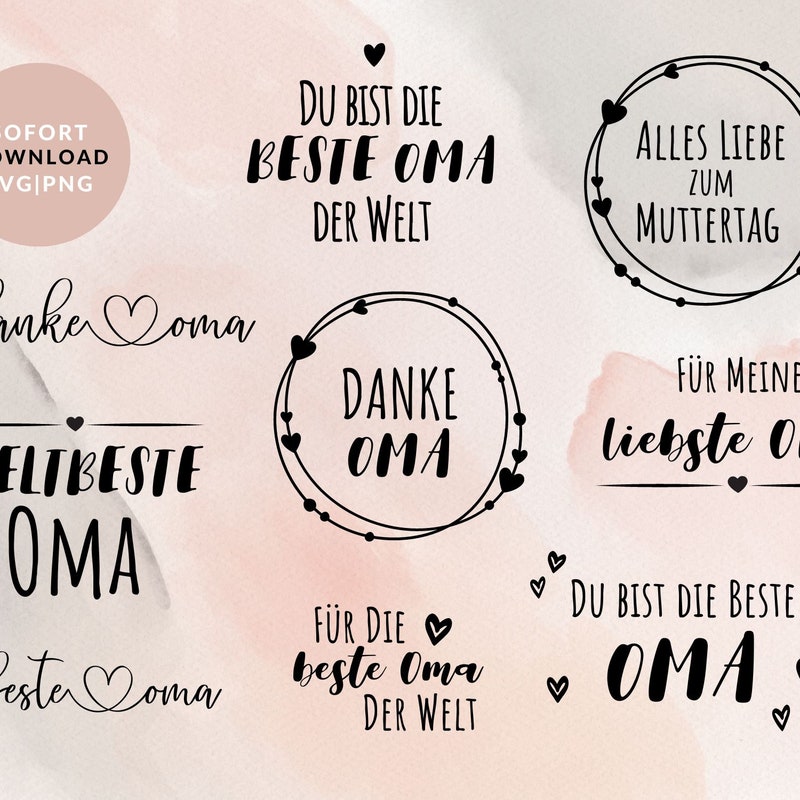 SOFORT
DOWNLOAD
SVG|PNG
DU BIST DIE
BESTE OMA
DER WELT
ALLES LIEBE
ZUM
MUTTERTAG
danke oma
DANKE
OMA
FÜR MEINE
liebste
WELTBESTE
OMA
FÜR DIE
beste Oma
DER WELT
DU BIST DIE BESTE
OMA
beste oma